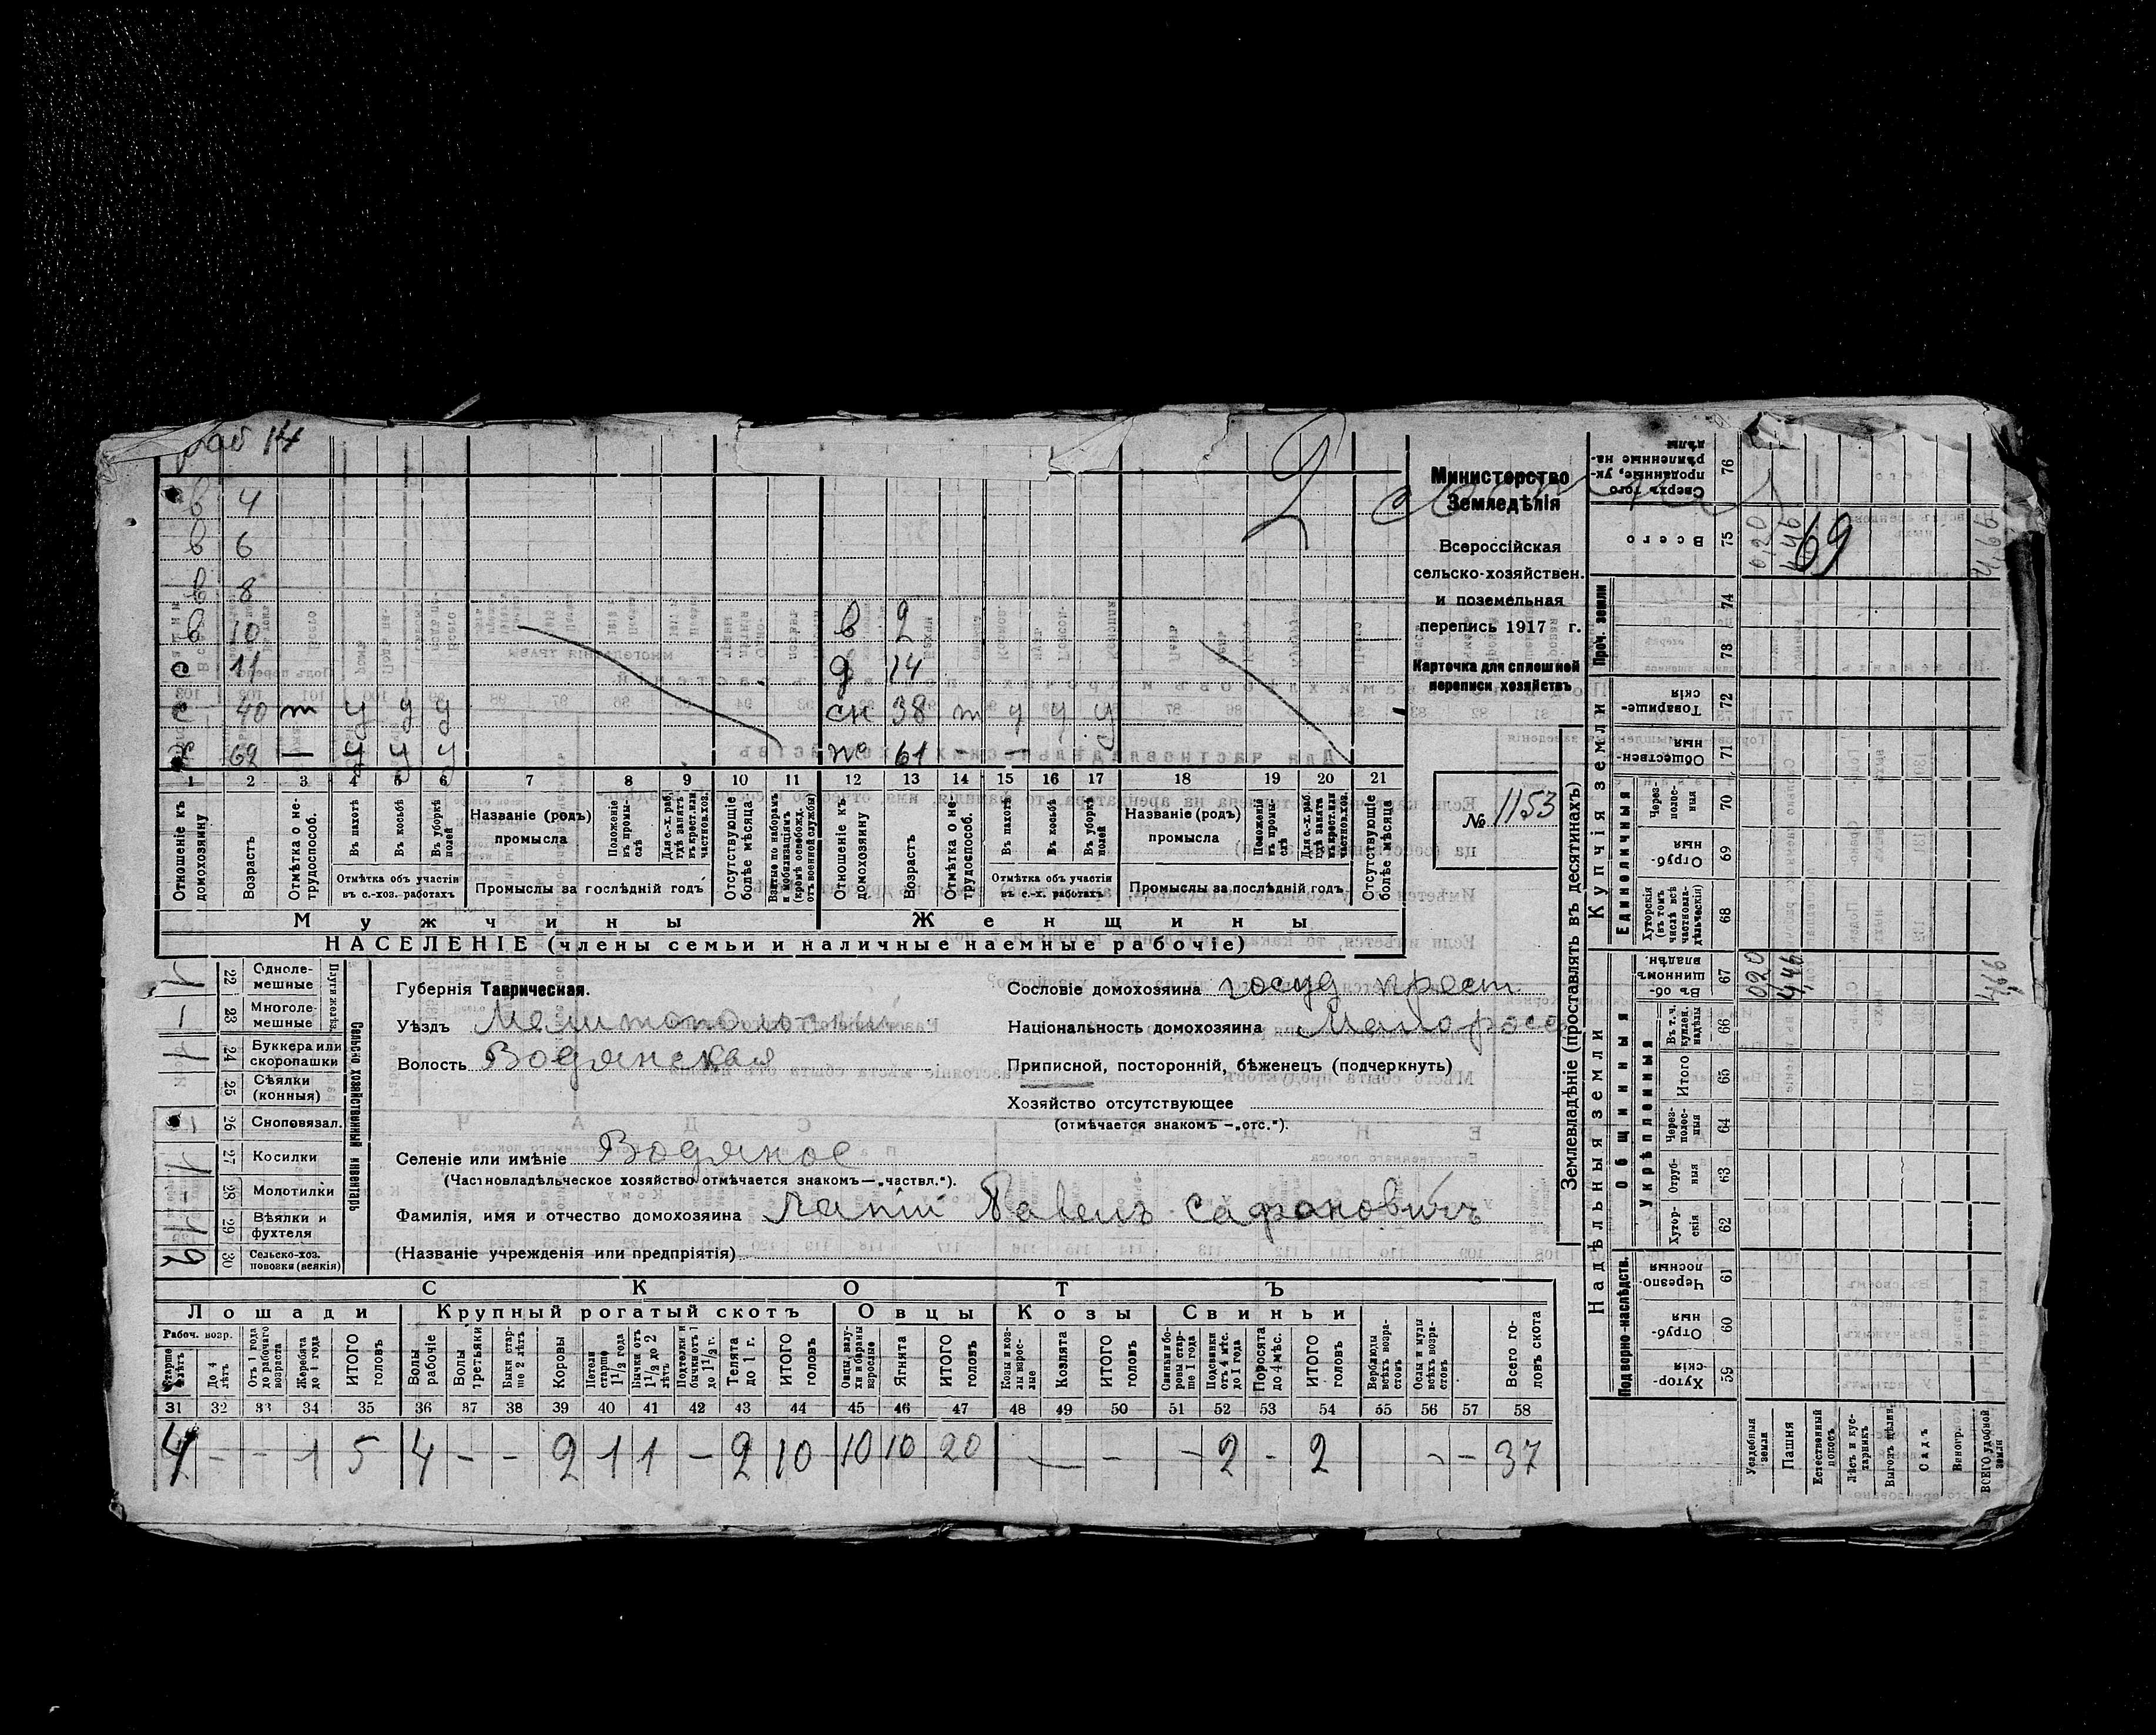 раб 14
в 4
в 6
в 8
в 10 в 2
с 11 д 14
с 40 т ч д у сн 38 т у у у
х 69 — ч ч ч 61 — —
1 2 3 4 5 6 7 8 9 10 11 12 13 14 15 16 17 18 19 20 21
Отношеніе къ домохозяину
Возрастъ
Отмѣтка о не-трудоспособ.
Въ пахотѣ
Въ косьбѣ
Въ уборкѣ полей
Отмѣтка объ участіи въ с.-хоз. работахъ
Названіе (родъ) промысла
Положеніе въ промы-слѣ
Для с.-х. раб. гдѣ занятъ въ крест. или частнов. хоз.
Промыслы за послѣдній годъ
Отсутствующіе болѣе мѣсяца
Взятые по наборамъ и мобилизаціямъ (кромѣ освобожд. отъ военной службы)
Отношеніе къ домохозяину
Возрастъ
Отмѣтка о не-трудоспособ.
Въ пахотѣ
Въ косьбѣ
Въ уборкѣ полей
Отмѣтка объ участіи въ с.-х. работахъ
Названіе (родъ) промысла
Положеніе въ промы-слѣ
Для с.-х. раб. гдѣ занята въ крест. или частнов. хоз.
Промыслы за послѣдній годъ
Отсутствующіе болѣе мѣсяца
Мужчины Женщины
НАСЕЛЕНІЕ (члены семьи и наличные наемные рабочіе)
Министерство
Земледѣлія
Всероссійская
сельско-хозяйствен.
и поземельная
перепись 1917 г.
Карточка для сплошной
переписи хозяйствъ
№ 1153
Сельско хозяйственный инвентарь
Плуги желѣз.
22 Однолемешные 1
23 Многолемешные —
24 Буккера или скоропашки 1
25 Сѣялки (конныя)
26 Сноповязал.
27 Косилки 1
28 Молотилки —
29 Вѣялки и фухтеля 1
30 Сельско-хоз. повозки (всякія) 2
Губернія Таврическая.
Уѣздъ Мелитопольскій
Волость Водянская
Сословіе домохозяина госуд крест
Національность домохозяина Малоросс
Приписной, посторонній, бѣженец (подчеркнуть)
Хозяйство отсутствующее
(отмѣчается знакомъ —„отс.“).
Селеніе или имѣніе Водяное
(Частновладѣльческое хозяйство отмѣчается знакомъ—„частвл.“).
Фамилія, имя и отчество домохозяина Лапій Павелъ Сафоновичъ
(Названіе учрежденія или предпріятія)
СКОТЪ
Лошади Крупный рогатый скотъ Овцы Козы Свиньи
Рабоч. возр.
Старше 4 лѣтъ
До 4 лѣтъ
Отъ 1 года до рабочаго возраста
Жеребята до 1 года
ИТОГО головъ
Волы рабочіе
Волы третьяки
Быки старше 2 лѣтъ
Коровы
Нетели старше 1 1/2 года
Бычки отъ 1 1/2 до 2 лѣтъ
Подтелки и бычки отъ 1 до 1 1/2 г.
Телята до 1 г.
ИТОГО головъ
Овцы, валухи и бараны взрослые
Ягнята
ИТОГО головъ
Козы и козлы взрослые
Козлята
ИТОГО головъ
Свиньи боровы старше 1 года
Подсвинки отъ 4 мѣс. до 1 года
Поросята до 4 мѣс.
ИТОГО головъ
Верблюды всѣхъ возрастовъ
Ослы и мулы всѣхъ возрастовъ
Всего головъ скота
31 32 33 34 35 36 37 38 39 40 41 42 43 44 45 46 47 48 49 50 51 52 53 54 55 56 57 58
4 - - 1 5 4 - - 2 1 1 - 2 10 10 10 20 — - - 2 - 2 - - 37
Землевладѣніе (проставлять въ десятинахъ)
Надѣльныя земли Купчія земли Проч. земли
Подворно-наслѣдств.
Общинныя
Укрѣпленныя
Единоличныя
Хуторскія 59
Отрубныя 60
Черезполосныя 61
Хуторскія 62
Отрубныя 63
Черезполосныя 64
Итого 65
Въ т. ч. куплен. надѣлы 66
Въ общинномъ владѣн. 67
Хуторскія (въ томъ числѣ всѣ частновладѣльческія) 68
Отрубныя 69
Черезполосныя 70
Общественныя 71
Товарищескія 72
73
74
Всего 75
Сверхъ того проданные, укрѣпленные надѣлы 76
Усадебныя земли 0,20 0,20
Пашня 4,46 4,46
Естественный покосъ
Лѣсъ и кустарникъ
Выгонъ цѣлин.
Садъ
Виногр.
ВСЕГО удобной земли 4,66 4,69
69